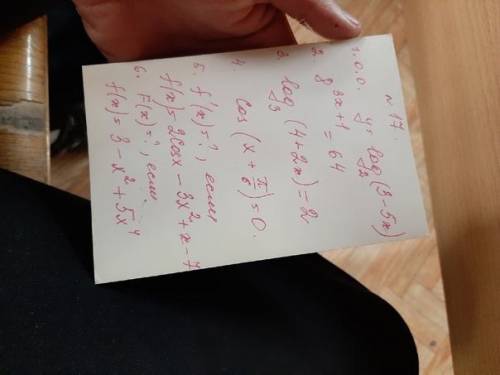 № 17.
1. О.О. y = log₂(3-5x)
2. 8^(3x+1) = 64
3. log₃(4+2x) = 2
4. cos(x + π/6) = 0.
5. f'(x)=?, если
f(x) = 2cosx - 3x² + x - 7
6. F(x)=?, если
f(x) = 3 - x² + 5x⁴